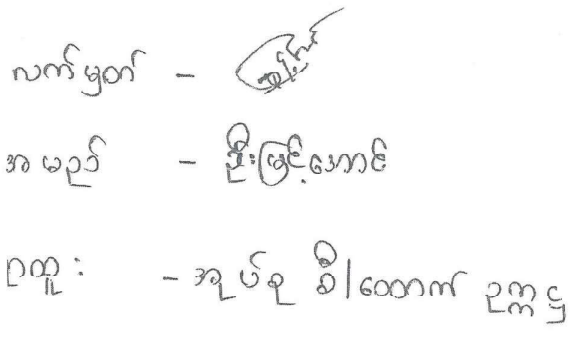 လက်မှတ် -
အမည် - ဦးမြင့်အောင်
ရာထူး - အုပ်စု စီ/ထောက် ဥက္ကဋ္ဌ